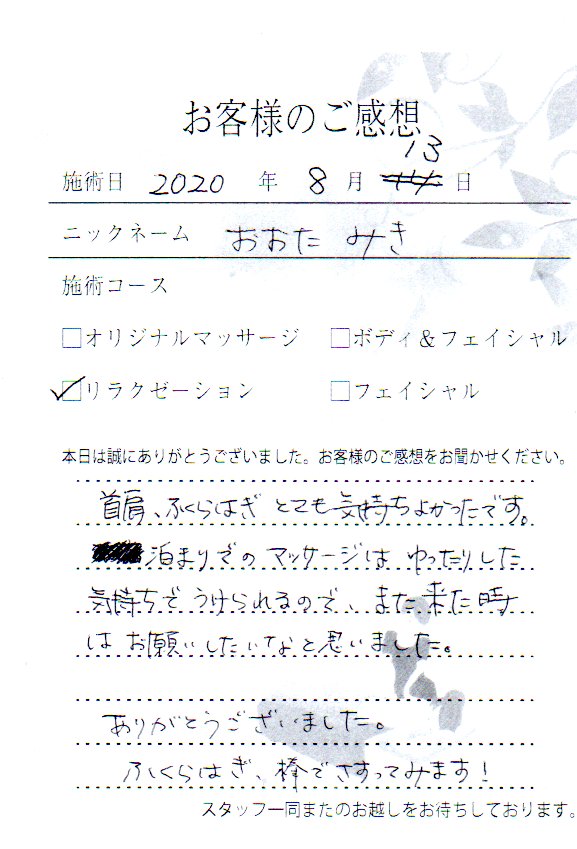 お客様のご感想
13
施術日 2020 年 8 月 日
ニックネーム おおた みき
施術コース
□オリジナルマッサージ □ボディ&フェイシャル
☑リラクゼーション □フェイシャル
本日は誠にありがとうございました。お客様のご感想をお聞かせください。
首肩、ふくらはぎ とても気持ちよかったです。
泊まりでの マッサージは ゆったりした
気持ちで うけられるので、また来た時
は お願いしたいなと思いました。
ありがとうございました。
ふくらはぎ、棒でさすってみます!
スタッフ一同またのお越しをお待ちしております。